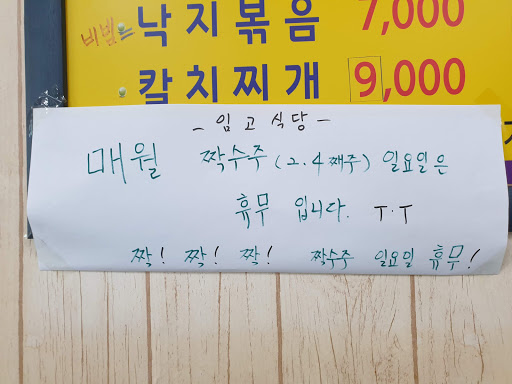 비빔 낙지볶음 7,000
칼치찌개 9,000
- 임고식당 -
매월 짝수주 (2.4째주) 일요일은
휴무 입니다. T.T
짝! 짝! 짝! 짝수주 일요일 휴무!